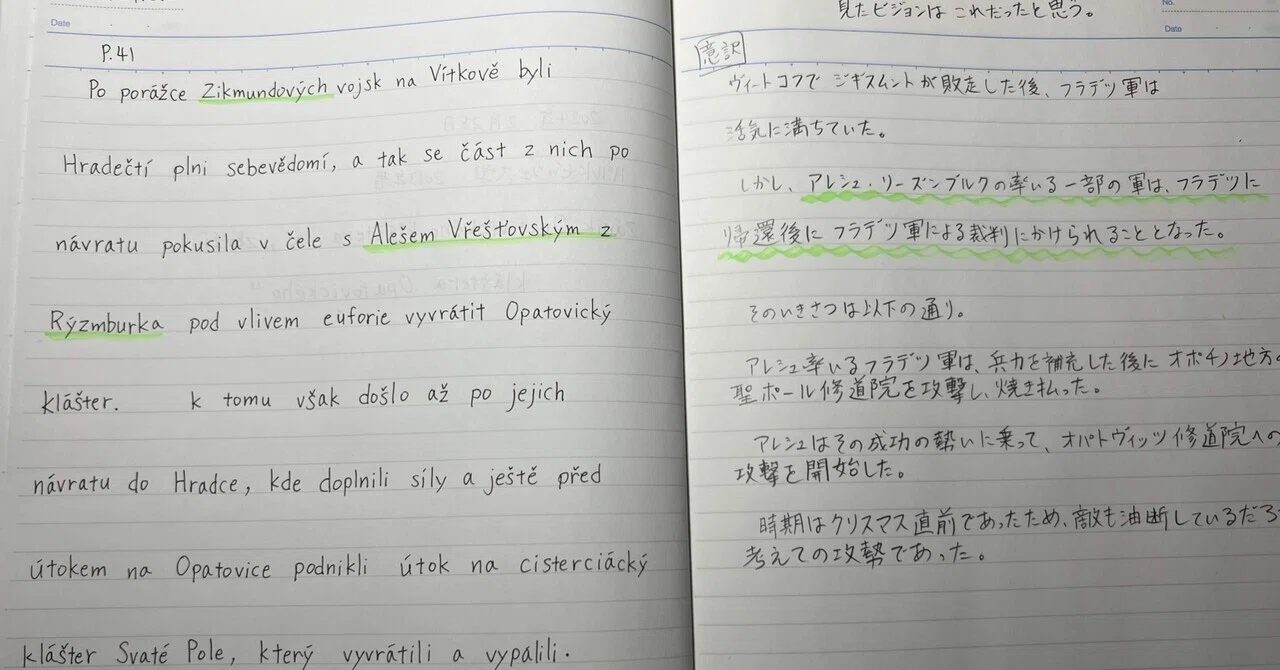 Date
P.41
Po porážce Zikmundových vojsk na Vítkově byli
Hradečtí plni sebevědomí, a tak se část z nich po
návratu pokusila v čele s Alešem Vřešťovským z
Rýzmburka pod vlivem euforie vyvrátit Opatovický
klášter. k tomu však došlo až po jejich
návratu do Hradce, kde doplnili síly a ještě před
útokem na Opatovice podnikli útok na cisterciácký
klášter Svaté Pole, který vyvrátili a vypálili.
見たビジョンは これだったと思う。
No.
Date
意訳
ヴィートコフで ジギスムントが敗走した後、フラデツ軍は
活気に満ちていた。
しかし、アレシュ・リーズンブルクの率いる一部の軍は、フラデツに
帰還後に フラデツ軍による裁判にかけられることとなった。
そのいきさつは以下の通り。
アレシュ率いるフラデツ軍は、兵力を補充した後に オポチノ地方の
聖ポール修道院を攻撃し、焼き払った。
アレシュはその成功の勢いに乗って、オパトヴィッツ修道院への
攻撃を開始した。
時期はクリスマス直前であったため、敵も油断しているだろ
考えての攻勢であった。